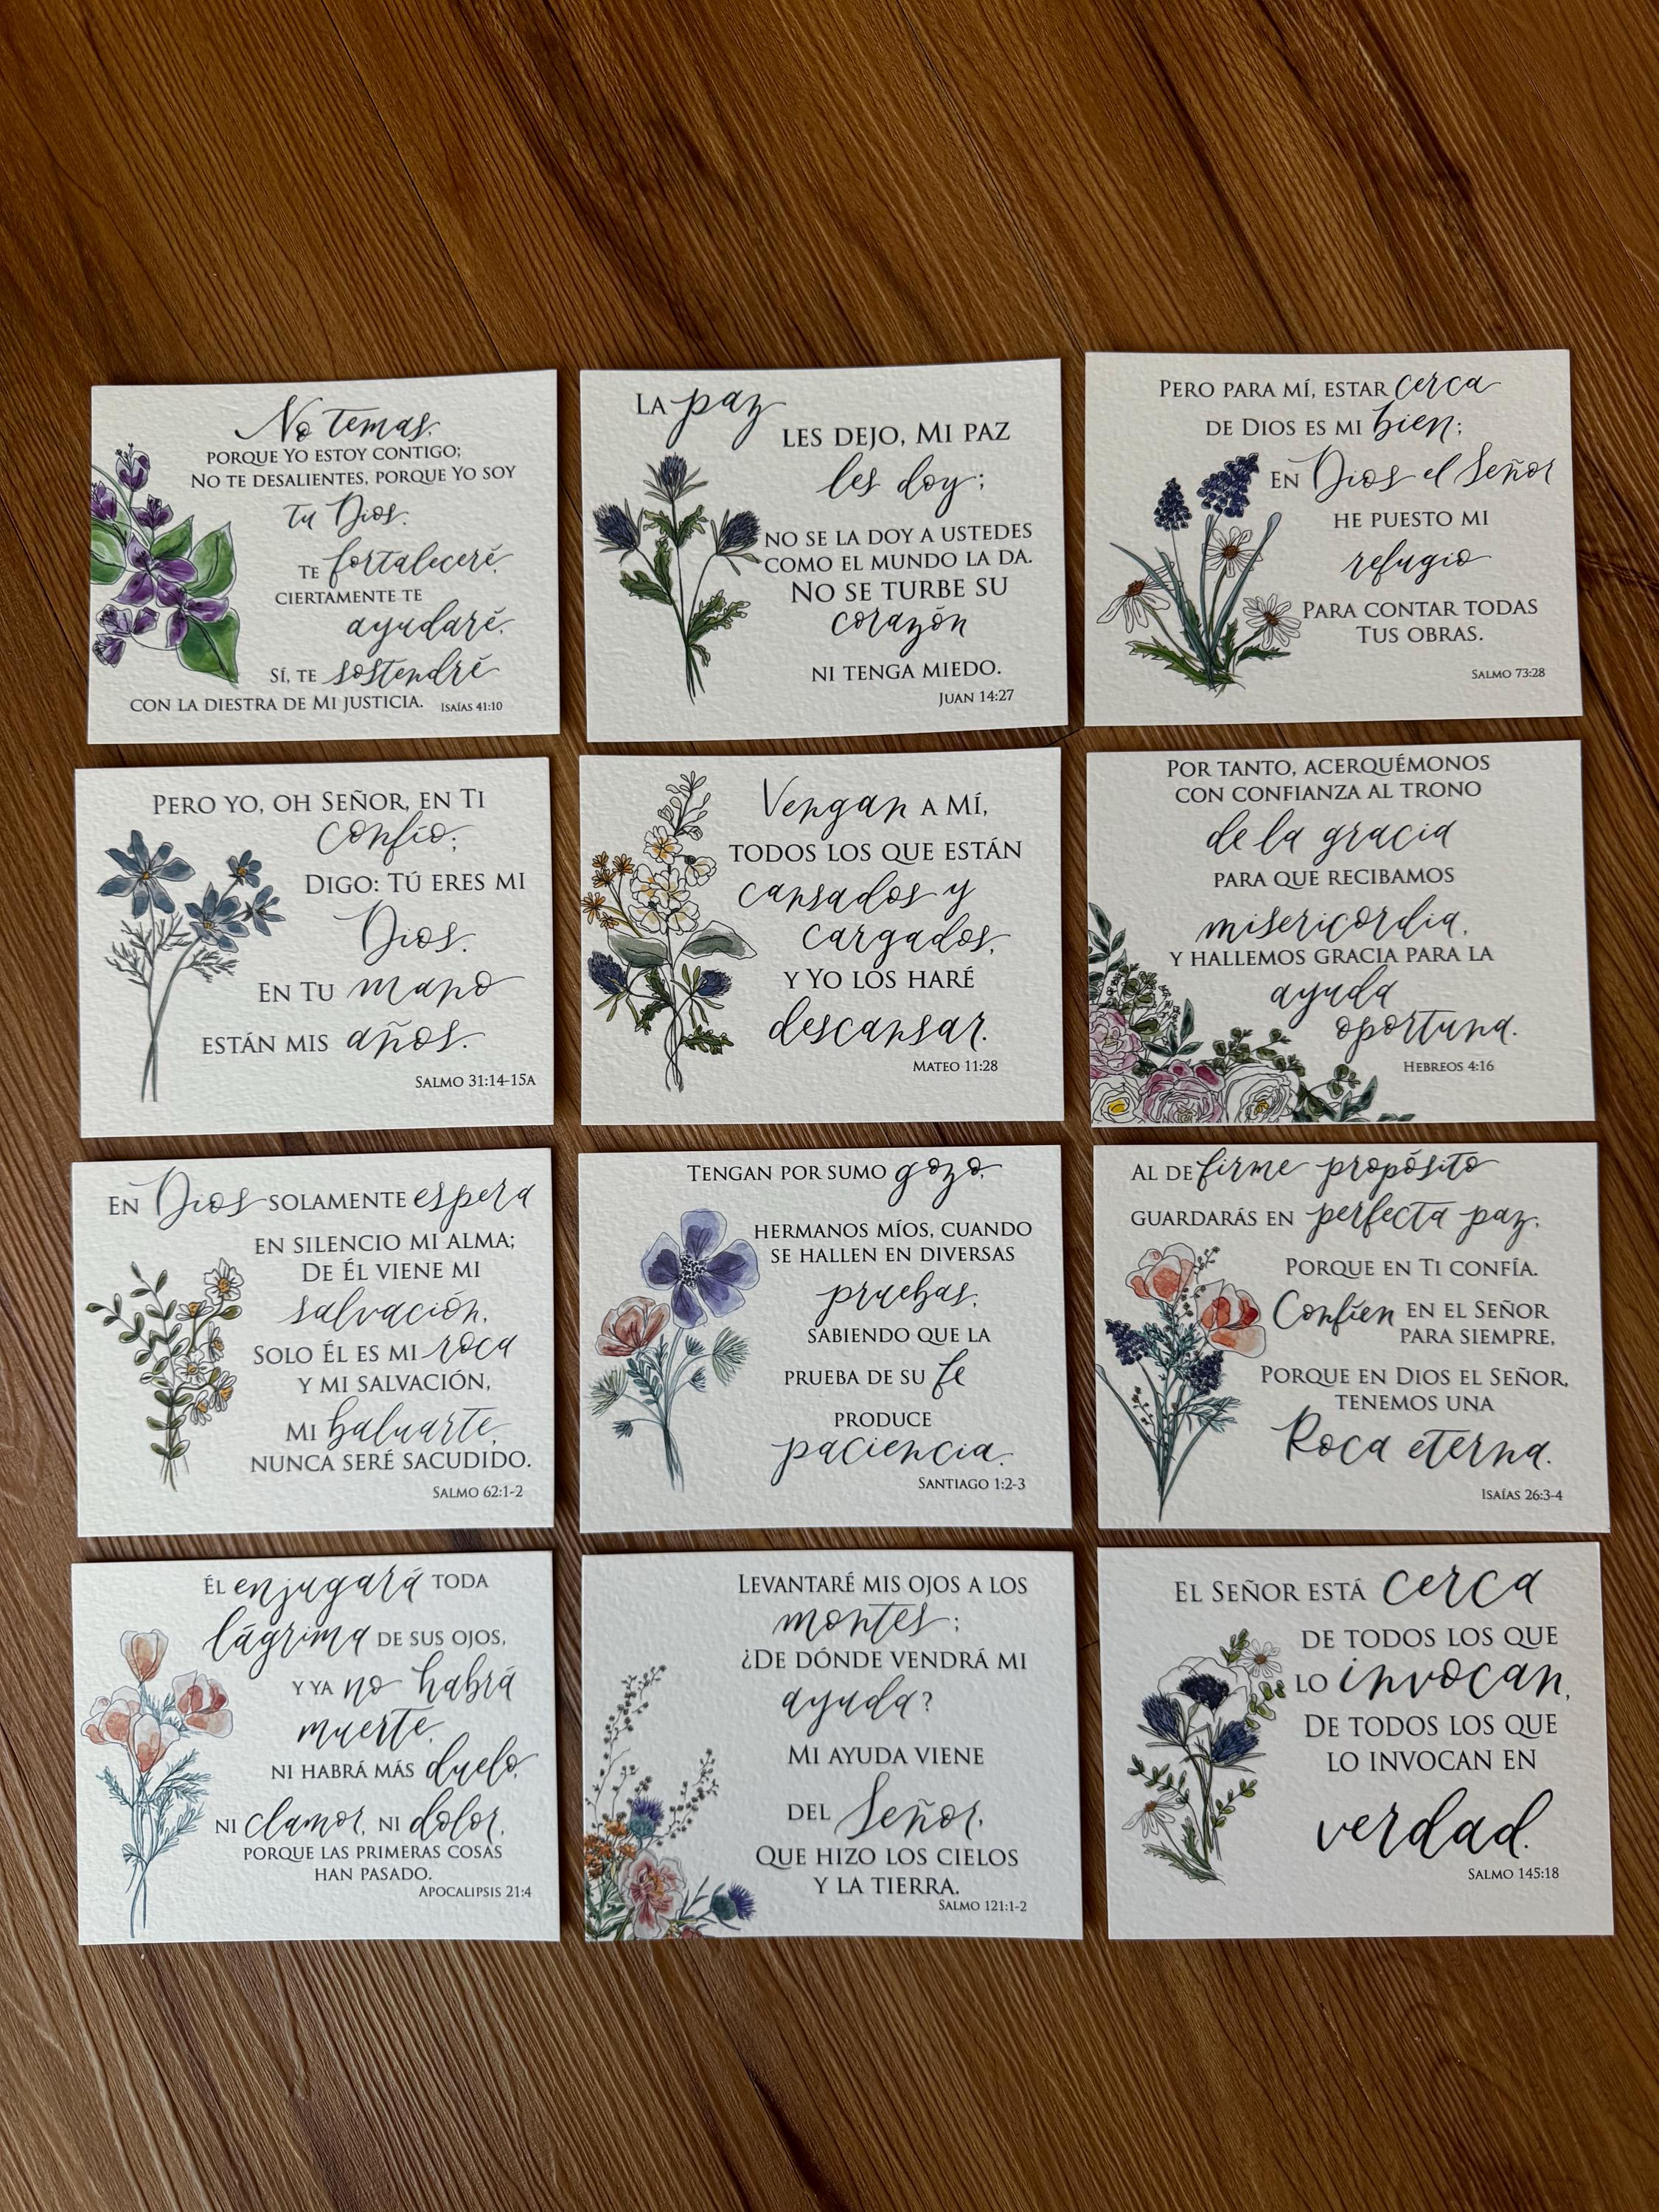 No temas,
PORQUE YO ESTOY CONTIGO;
NO TE DESALIENTES, PORQUE YO SOY
tu Dios.
TE fortaleceré,
CIERTAMENTE TE
ayudaré,
SÍ, TE sostendré
CON LA DIESTRA DE MI JUSTICIA.
ISAÍAS 41:10
LA paz
LES DEJO, MI PAZ
les doy;
NO SE LA DOY A USTEDES
COMO EL MUNDO LA DA.
NO SE TURBE SU
corazón
NI TENGA MIEDO.
JUAN 14:27
PERO PARA MÍ, ESTAR cerca
DE DIOS ES MI bien;
EN Dios el Señor
HE PUESTO MI
refugio
PARA CONTAR TODAS
TUS OBRAS.
SALMO 73:28
PERO YO, OH SEÑOR, EN TI
confío;
DIGO: TÚ ERES MI
Dios.
EN TU mano
ESTÁN MIS años.
SALMO 31:14-15A
Vengan A MÍ,
TODOS LOS QUE ESTÁN
cansados y
cargados,
Y YO LOS HARÉ
descansar.
MATEO 11:28
POR TANTO, ACERQUÉMONOS
CON CONFIANZA AL TRONO
de la gracia
PARA QUE RECIBAMOS
misericordia,
Y HALLEMOS GRACIA PARA LA
ayuda
oportuna.
HEBREOS 4:16
EN Dios SOLAMENTE espera
EN SILENCIO MI ALMA;
DE ÉL VIENE MI
salvación,
SOLO ÉL ES MI roca
Y MI SALVACIÓN,
MI baluarte,
NUNCA SERÉ SACUDIDO.
SALMO 62:1-2
TENGAN POR SUMO gozo,
HERMANOS MÍOS, CUANDO
SE HALLEN EN DIVERSAS
pruebas,
SABIENDO QUE LA
PRUEBA DE SU fe
PRODUCE
paciencia.
SANTIAGO 1:2-3
AL DE firme propósito
GUARDARÁS EN perfecta paz,
PORQUE EN TI CONFÍA.
Confíen EN EL SEÑOR
PARA SIEMPRE,
PORQUE EN DIOS EL SEÑOR,
TENEMOS UNA
Roca eterna.
ISAÍAS 26:3-4
ÉL enjugará TODA
lágrima DE SUS OJOS,
Y YA no habrá
muerte,
NI HABRÁ MÁS duelo,
NI clamor, NI dolor,
PORQUE LAS PRIMERAS COSAS
HAN PASADO.
APOCALIPSIS 21:4
LEVANTARÉ MIS OJOS A LOS
montes;
¿DE DÓNDE VENDRÁ MI
ayuda?
MI AYUDA VIENE
DEL Señor,
QUE HIZO LOS CIELOS
Y LA TIERRA.
SALMO 121:1-2
EL SEÑOR ESTÁ cerca
DE TODOS LOS QUE
LO invocan,
DE TODOS LOS QUE
LO INVOCAN EN
verdad.
SALMO 145:18